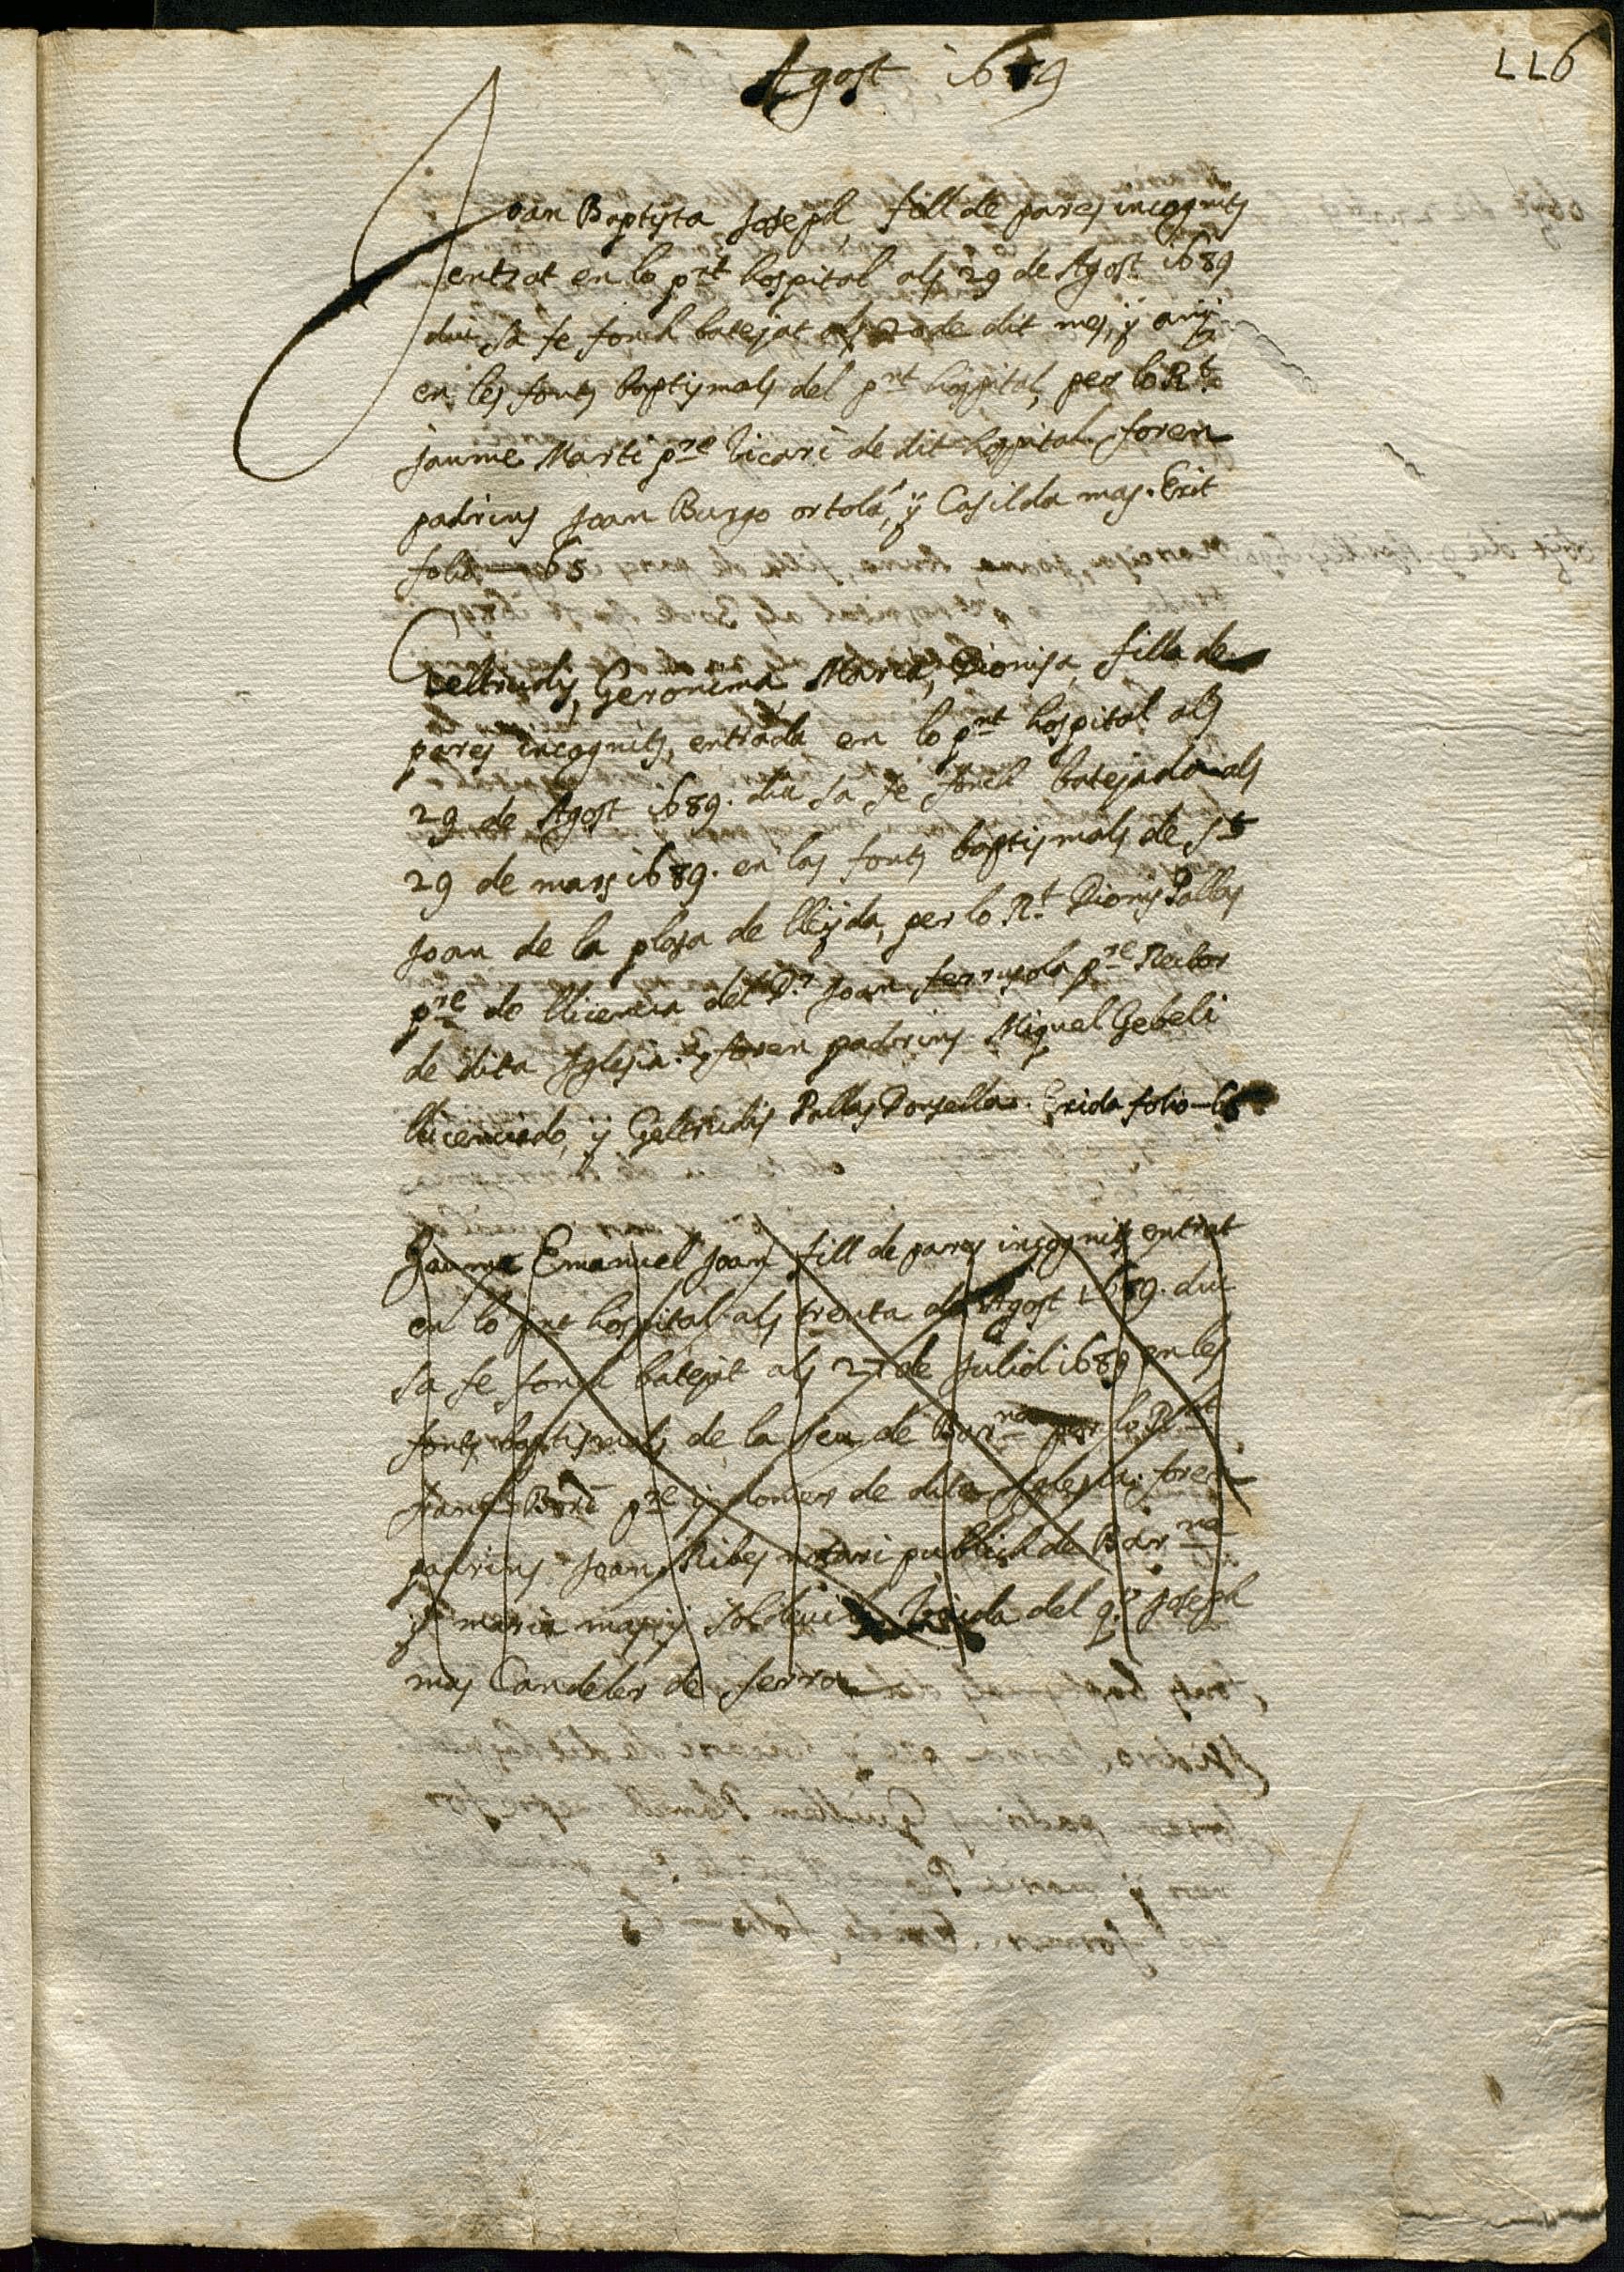 Agost 1689
116
Joan Baptista Joseph, fill de pares incognits
entrat en lo pnt hospital als 29 de Agost 1689
diu sa fe fonch batejat als 20 de dit mes, y any
en les fonts baptismals del pnt hospital, per lo Rt
Jaume Marti pre Vicari de dit hospital foren
padrins Joan Burgo ortolá, y Casilda mas. Exit
folio — 65
Geltrudis, Geronima, Maria, Dionisa, filla de
pares incognits, entrada en lo pnt hospital als
29 de Agost 1689. diu sa fe fonch batejada als
29 de mars 1689. en las fonts baptismals de St
Joan de la plasa de lleyda, per lo Rt Dionis Pallas
pre de llicencia del Dr Joan ferrusola pre Rector
de dita Iglesia. y foren padrins Miquel Gebeli
llicenciado, y Geltrudis Pallas Donsella. Exida folio — 65
Jaume Emanuel Joan fill de pares incognits entrat
en lo pnt hospital als trenta de Agost 1689. diu
sa fe fonch batejat als 27 de Juliol 1689 en les
fonts baptismals de la seu de Barna per lo Rnt
Franch pre y domer de dita Iglesia. foren
padrins Joan Ribes notari publich de Barna
y maria Viuda del qo Joseph
mas Candeler de ferro